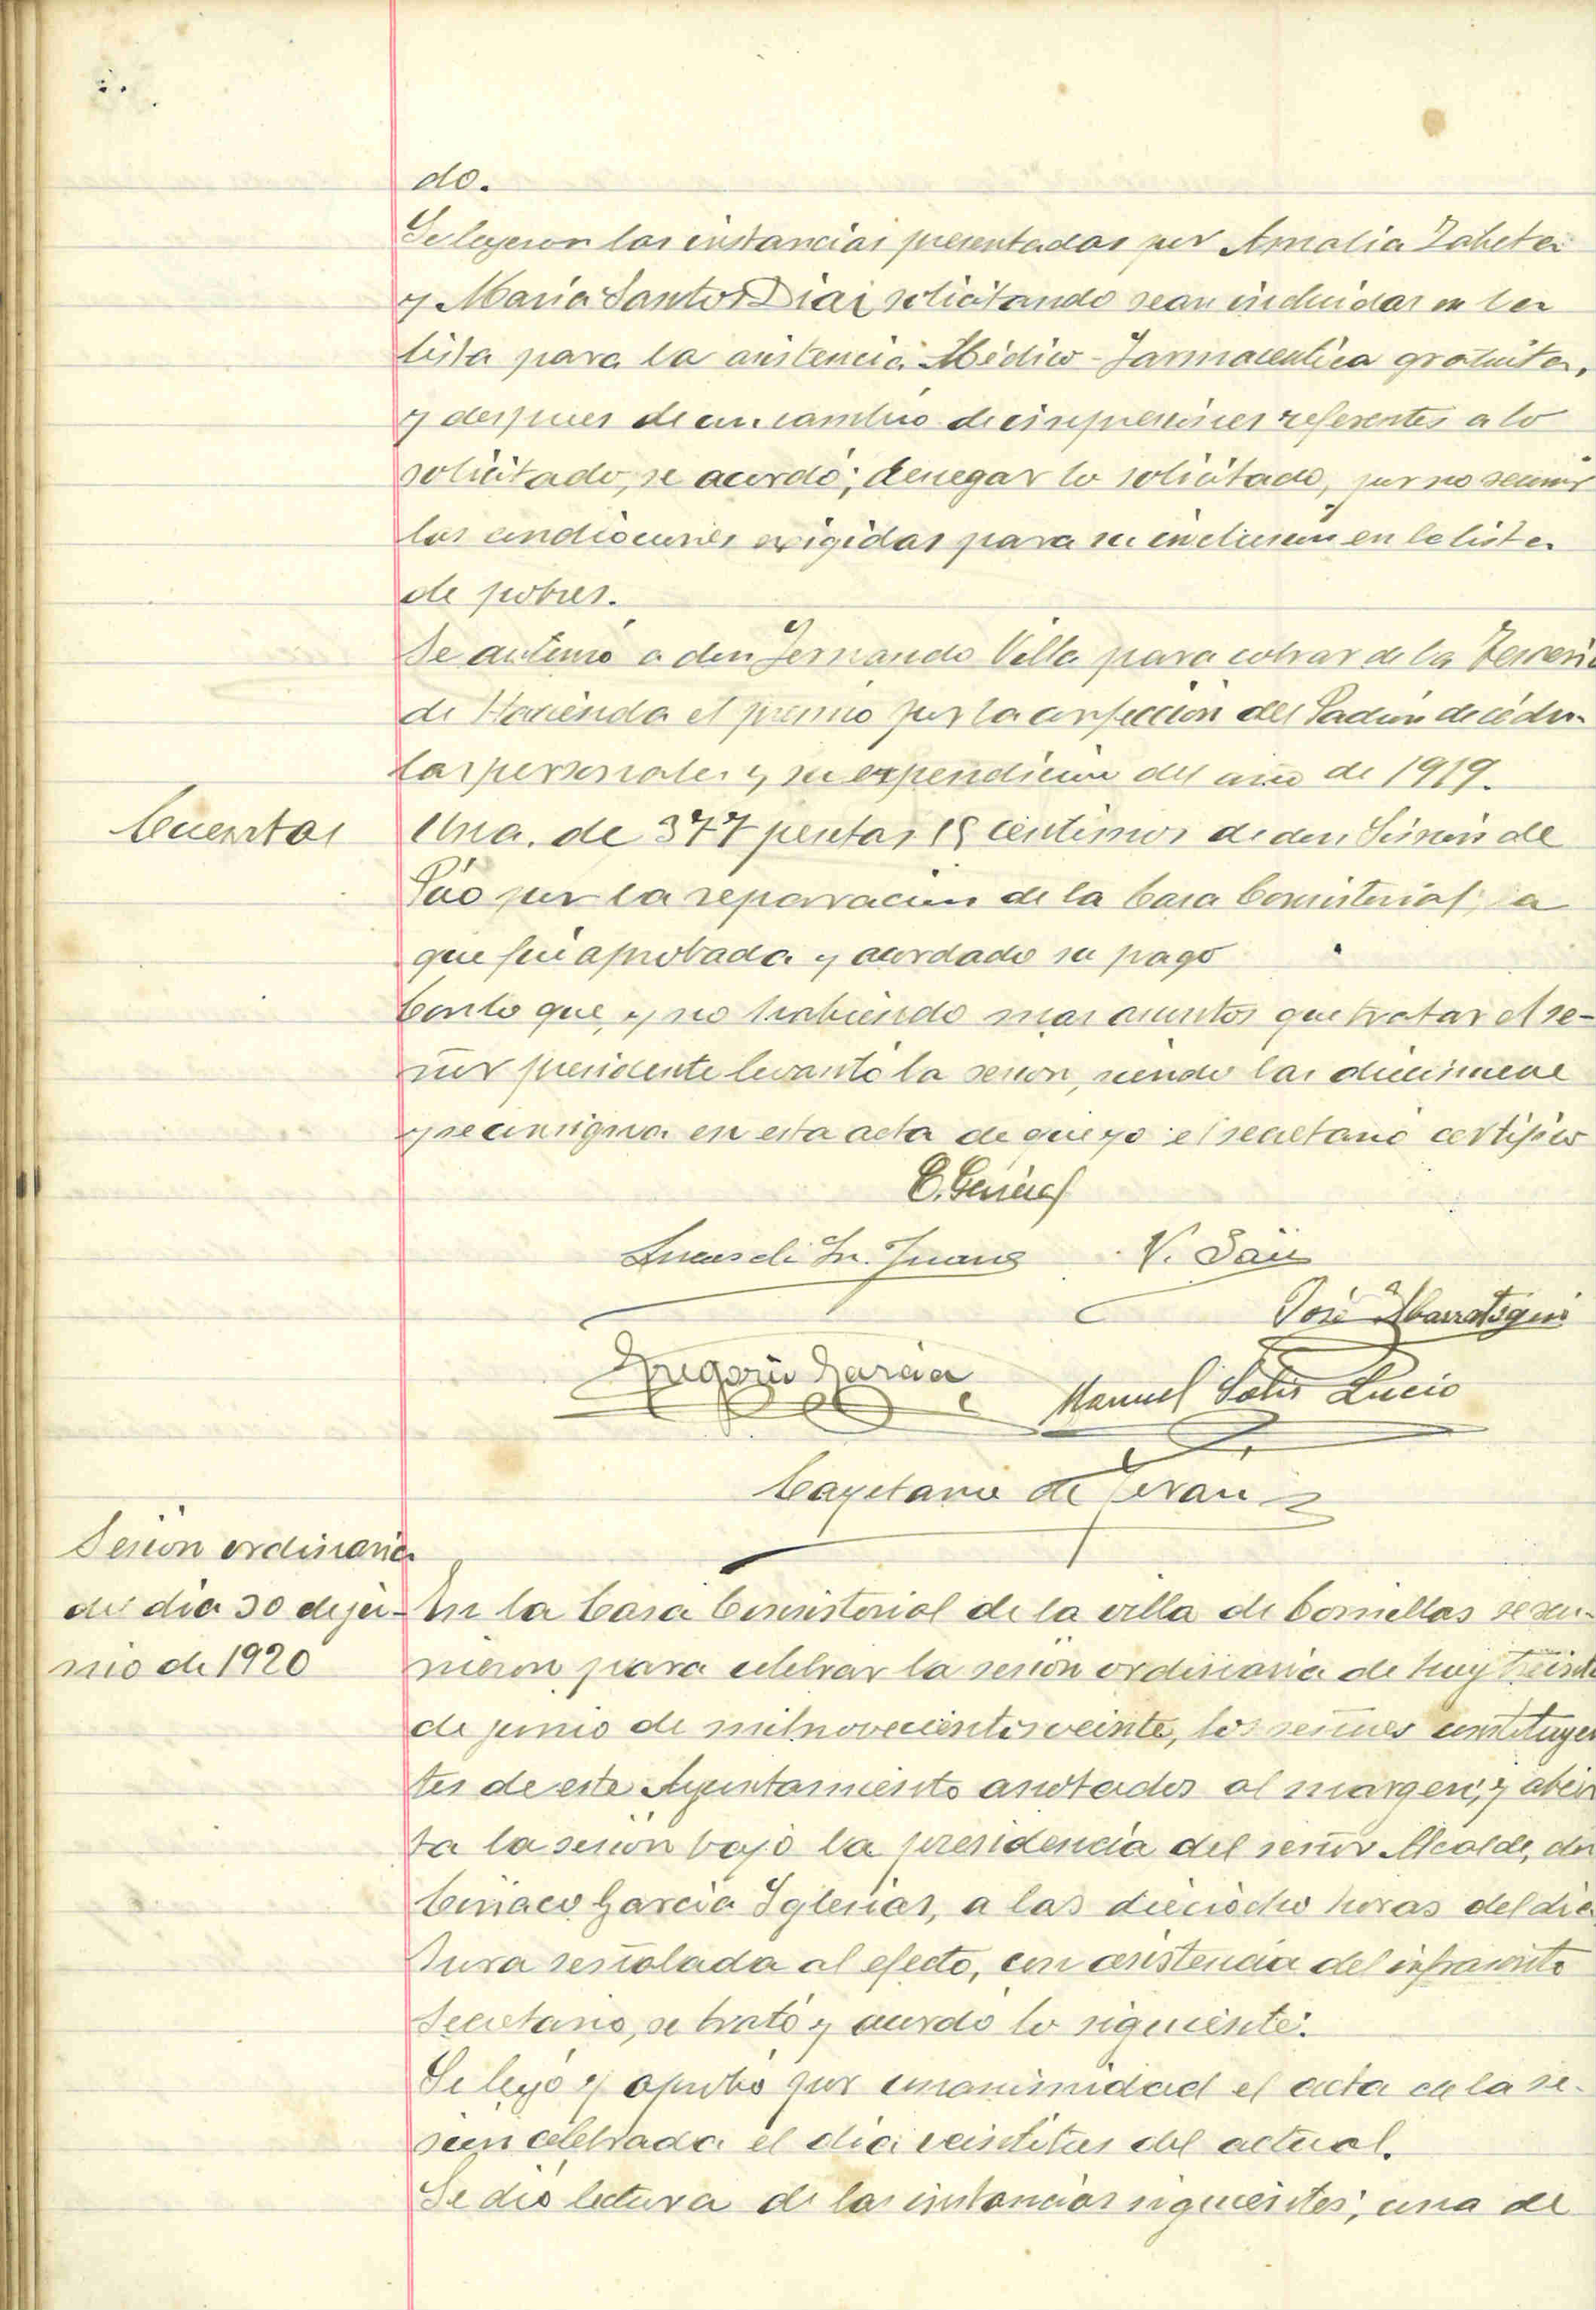 do.
Se leyeron las instancias presentadas por Amalia
y Maria Santos Diaz solicitando sean incluidas en la
lista para la asistencia Médico-Farmaceutica gratuita,
y despues de un cambio de impresiones referentes a lo
solicitado, se acordó; denegar lo solicitado, por no reunir
las condiciones exigidas para su inclusion en la lista
de pobres.
Se autorizó a don Fernando Villa para cobrar de la Tesoreria
de Hacienda el premio por la confección del Padron de cédu-
las personales y su expendicion del año de 1919.
Cuentas
Una de 377 pesetas 18 centimos de don Simón de
Pío por la reparracion de la Casa Consistorial; la
que fué aprobada y acordado su pago
Con lo que, y no habiendo mas asuntos que tratar el se-
ñor presidente levantó la sesion, siendo las diecinueve
y se consigna en esta acta de que yo el secretario certifico
Lucas de Sn. Juana V. Saiz
José
Gregorio Garcia
Manuel Solis Lucio
Cayetano de Teran
Sesion ordinaria
del dia 30 de ju-
nio de 1920
En la Casa Consistorial de la villa de Comillas se reu-
nieron para celebrar la sesión ordinaria de hoy treinta
de junio de mil novecientos veinte, los señores constituyen
tes de este Ayuntamiento anotados al margen; y abier
ta la sesión bajo la presidencia del señor Alcalde, don
Ciriaco Garcia Iglesias, a las dieciocho horas del dia
hora señalada al efecto, con asistencia del infrascrito
Secretario, se trató y acordó lo siguiente:
Se leyó y aprobó por unanimidad el acta de la se-
sion celebrada el dia veintitres del actual.
Se dió lectura de las instancias siguientes; una de